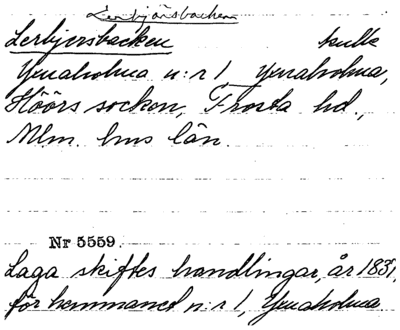 Lerbjärsbacken
Lerbjersbacken kulle
Ynaholma n:r 1, Ynaholma,
Höörs socken, Frosta hd.,
Mlm. hus län.
Nr 5559.
Laga skiftes handlingar, år 1831,
för hemmanet n:r 1, Ynaholma